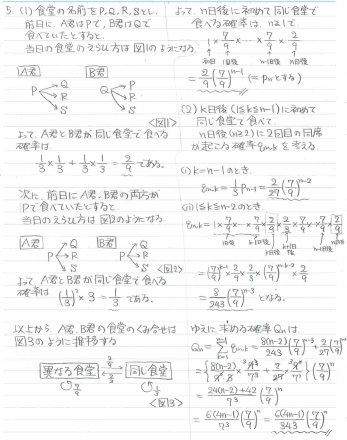 5. (1) 食堂の名前をP, Q, R, Sとし、
前日に、A君はPで、B君はQで
食べていたとすると、
当日の食堂のえらび方は図1のようになる。
A君 B君
P Q R S
Q P R S
<図1>
よって、A君とB君が同じ食堂で食べる
確率は
1/3 × 1/3 + 1/3 × 1/3 = 2/9 である。
次に、前日にA君、B君の両方が
Pで食べていたとすると、
当日のえらび方は図2のようになる。
A君 B君
P Q R S
P Q R S
<図2>
よって、A君とB君が同じ食堂で食べる
確率は (1/3)² × 3 = 1/3 である。
以上から、A君、B君の食堂のくみ合せは
図3のように推移する
異なる食堂 2/9 2/3 同じ食堂
7/9 1/3
<図3>
よって、n日後に初めて同じ食堂で
食べる確率は、n≧1で
1 × 7/9 × … × 7/9 × 2/9
初日 1日後 n-1日後 n日後
= 2/9 (7/9)^(n-1) (= pnとする)
(2) k日後 (1≦k≦n-1) に初めて
同じ食堂で食べて、
n日後(n≧2)に2回目の同席
が起こる確率 qn,k を考える。
(i) k=n-1のとき、
qn,k = 1/3 pn-1 = 2/27 (7/9)^(n-2)
(ii) 1≦k≦n-2のとき、
qn,k = 1 × 7/9 × … × 7/9 × 2/9 × 2/3 × 7/9 × … × 7/9 × 2/9
1日後 k-1日後 k日後 k+1日後 n-1日後 n日後
= (7/9)^(k-1) × 2/9 × 2/3 × (7/9)^(n-k-2) × 2/9
= 8/243 (7/9)^(n-3) となる。
ゆえに、求める確率 Qn は
Qn = Σ qn,k = 8(n-2)/243 (7/9)^(n-3) + 2/27 (7/9)^(n-2)
= 24(n-2)+42 / 7³ (7/9)^n
= 6(4n-1)/7³ (7/9)^n = 6(4n-1)/343 (7/9)^n